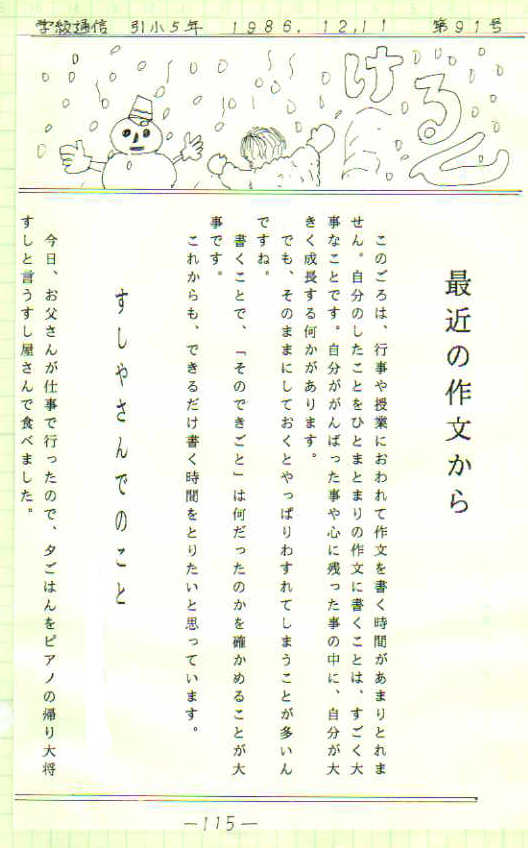 学級通信　引小5年　1986.12.11　第91号
けるん
最近の作文から
このごろは、行事や授業におわれて作文を書く時間があまりとれま
せん。自分のしたことをひとまとまりの作文に書くことは、すごく大
事なことです。自分ががんばった事や心に残った事の中に、自分が大
きく成長する何かがあります。
でも、そのままにしておくとやっぱりわすれてしまうことが多いん
ですね。
書くことで、「そのできごと」は何だったのかを確かめることが大
事です。
これからも、できるだけ書く時間をとりたいと思っています。
すしやさんでのこと
今日、お父さんが仕事で行ったので、夕ごはんをピアノの帰り大将
すしと言うすし屋さんで食べました。
—115—